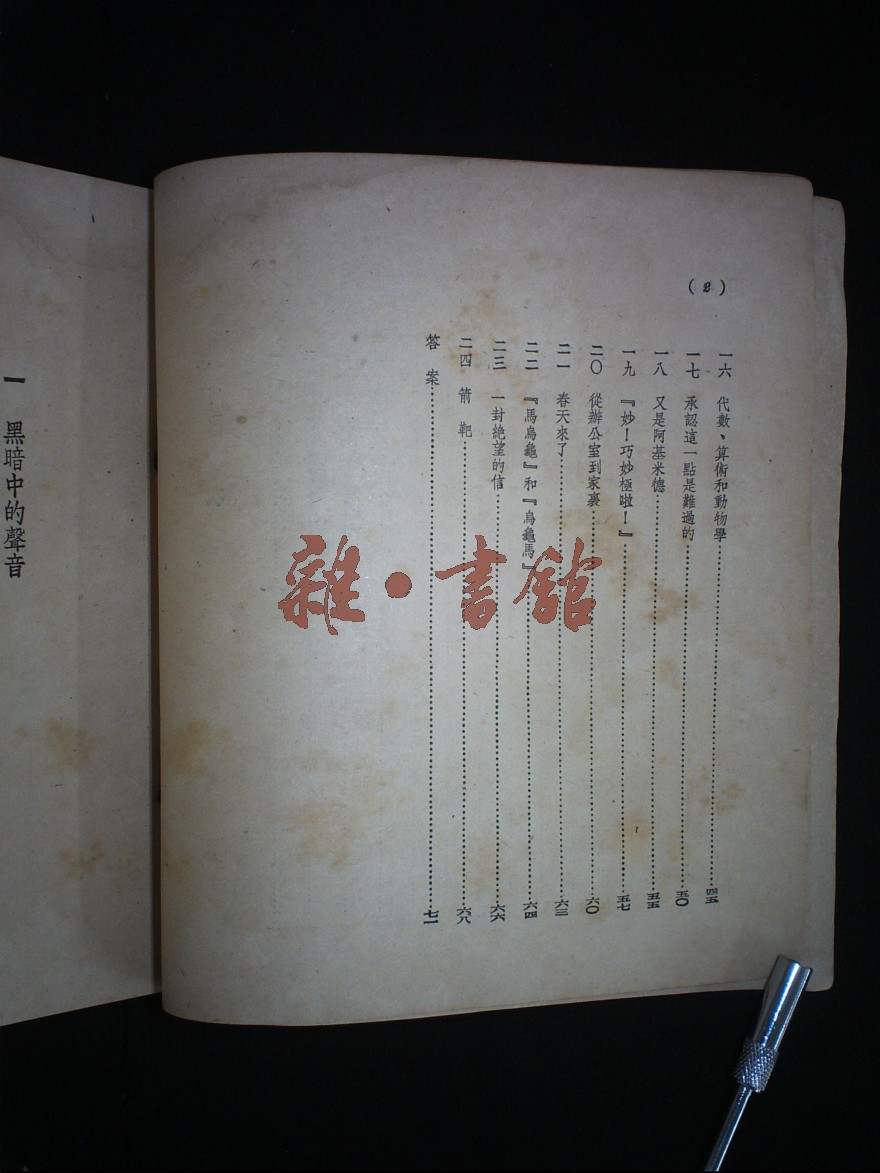 (2)
一六 代數、算術和動物學……四五
一七 承認這一點是難過的……五〇
一八 又是阿基米德……五五
一九 『妙！巧妙極啦！』……五七
二〇 從辦公室到家裏……六〇
二一 春天來了……六三
二二 『馬烏龜』和『烏龜馬』……六四
二三 一封絕望的信……六六
二四 箭靶……六八
答案……七一
一 黑暗中的聲音
雜·書館